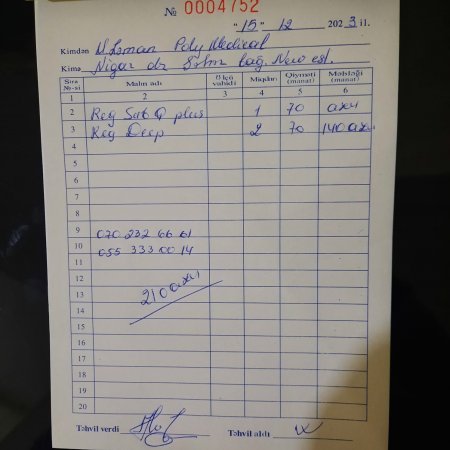 № 0004752
"15" 12 2023 il.
Kimdən Usman Poly Medical
Kimə Nigar dr bağ New est.
Sıra №-si Malın adı Ölçü vahidi Miqdarı Qiyməti (manat) Məbləği (manat)
1 2 3 4 5 6
2 Rej Sub Q plus 1 70 azn
3 Rej Deep 2 70 140 azn
4
5
6
7
8
9 070 232 66 61
10 055 333 00 14
11
12
13 210 azn
14
15
16
17
18
19
20
Təhvil verdi Təhvil aldı